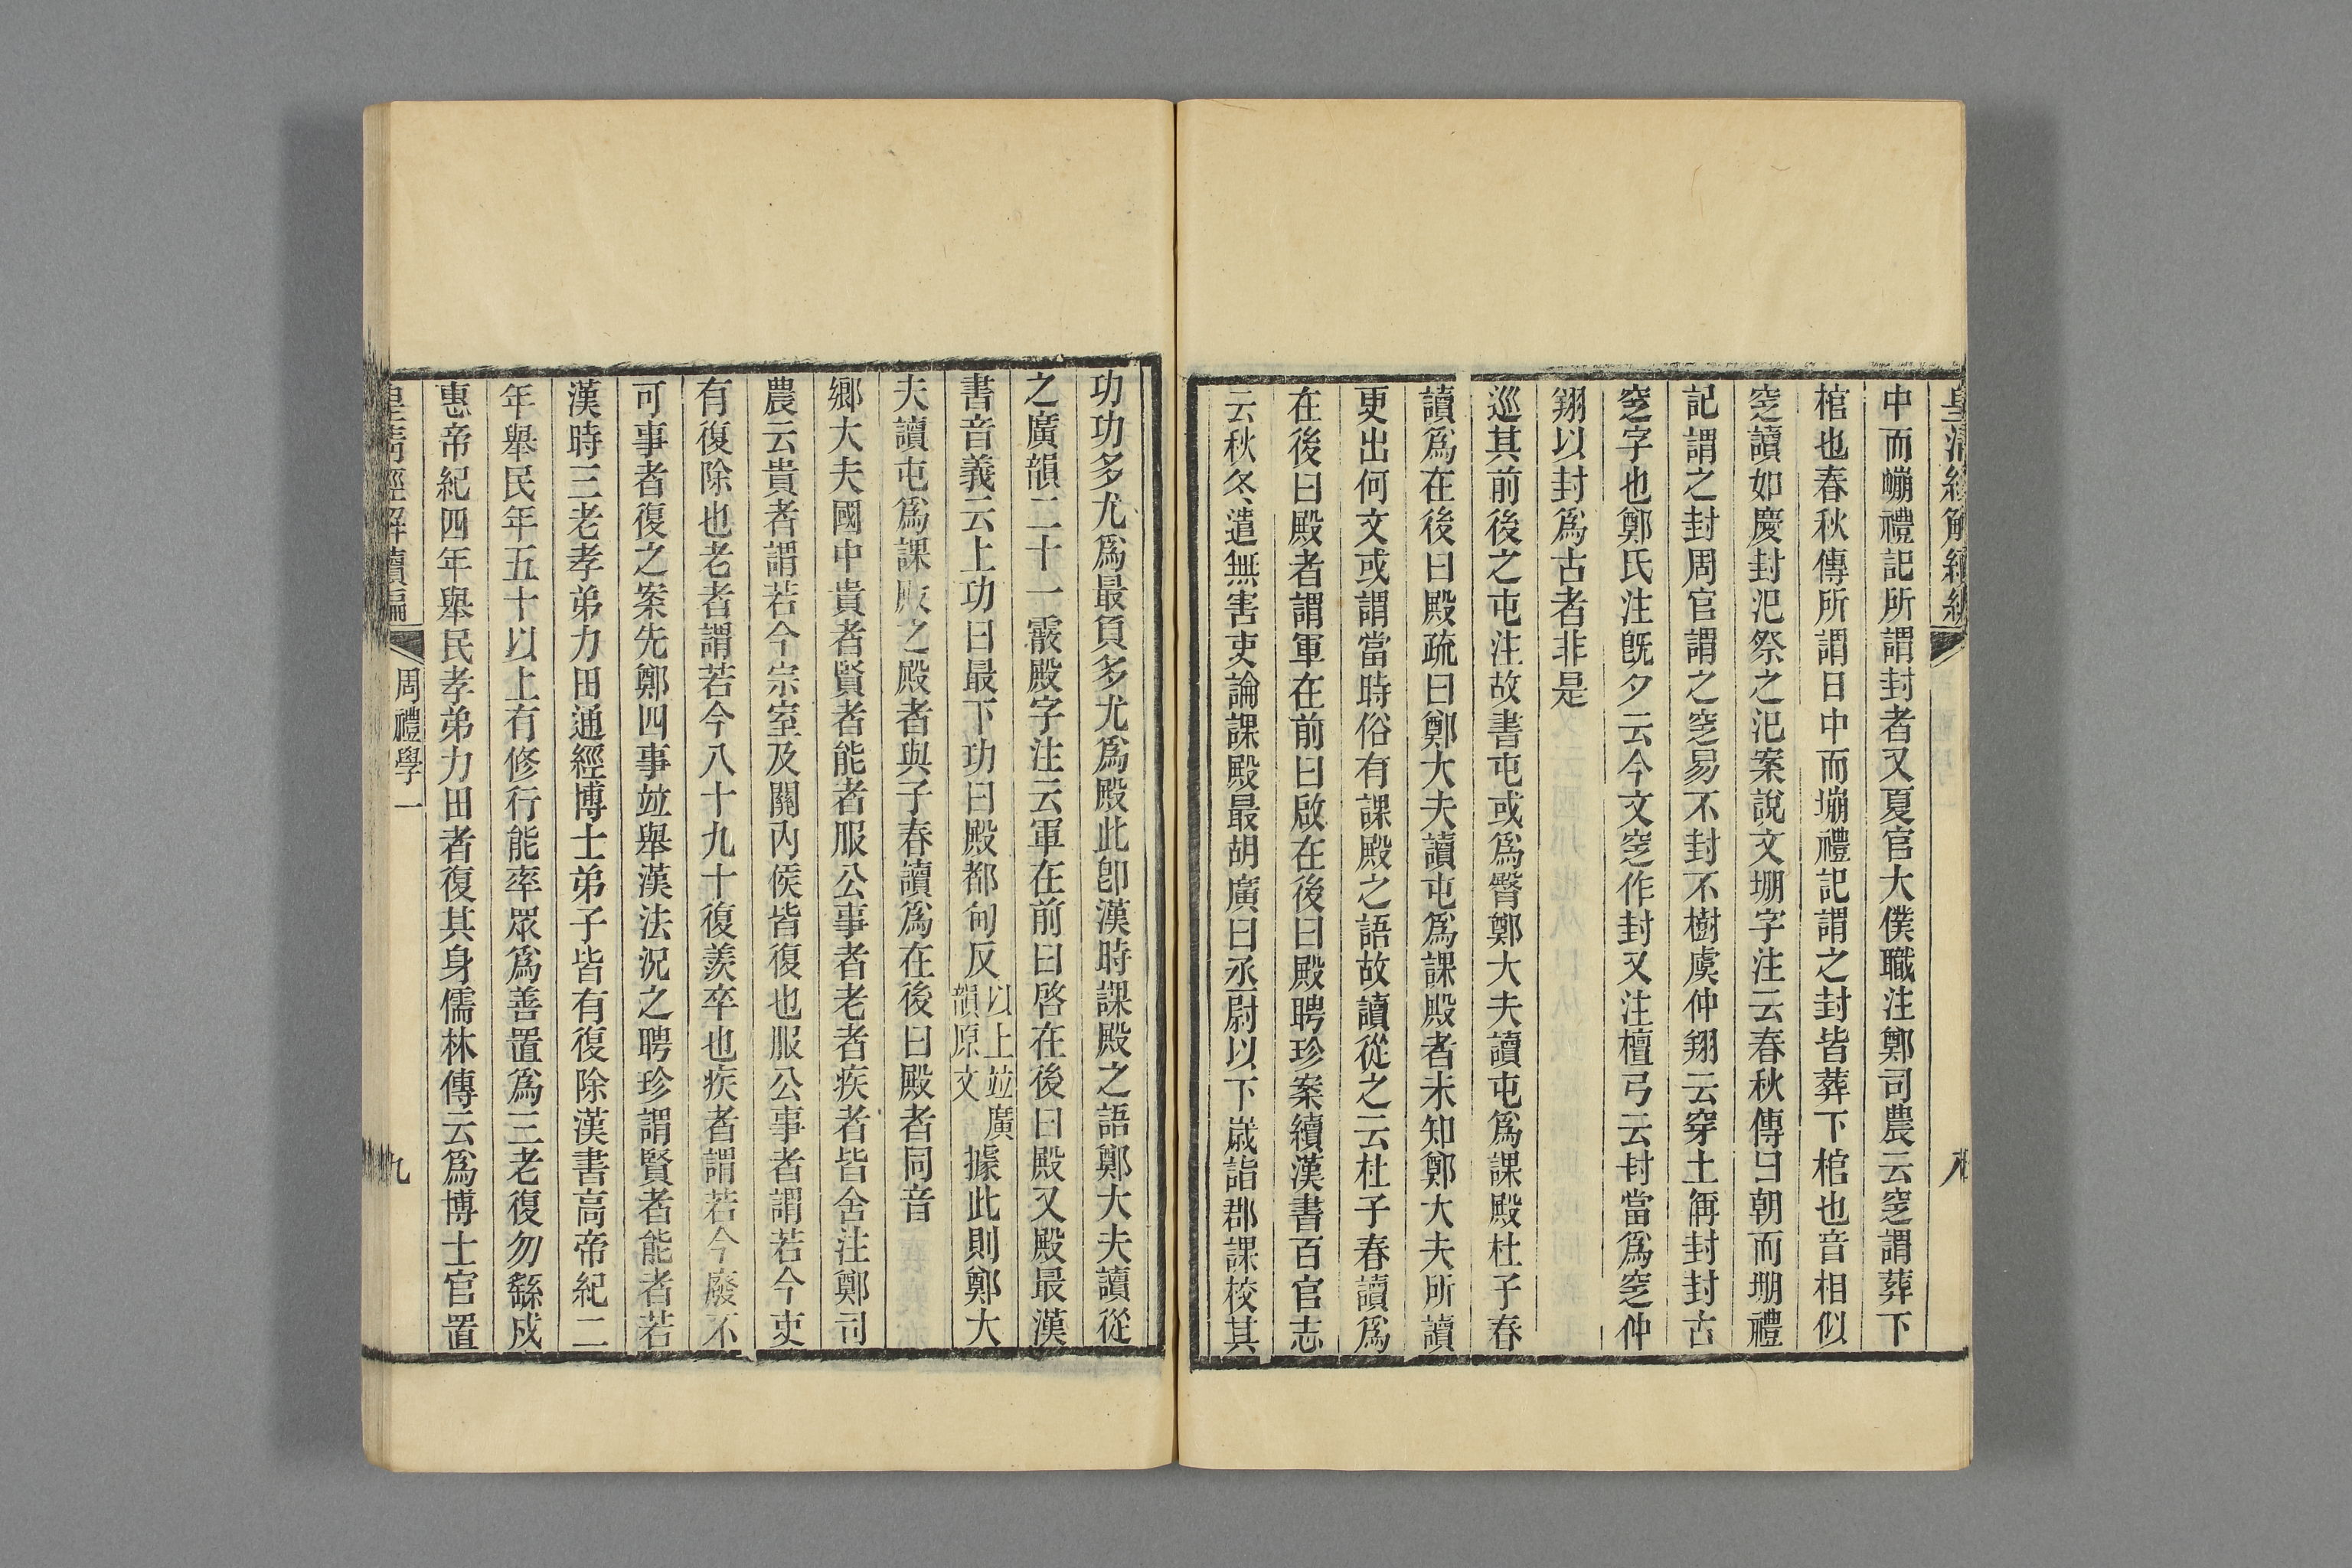 皇清經解續編
八
中而塴禮記所謂封者又夏官大僕職注鄭司農云窆謂葬下
棺也春秋傳所謂日中而塴禮記謂之封皆葬下棺也音相似
窆讀如慶封氾祭之氾案說文堋字注云春秋傳曰朝而堋禮
記謂之封周官謂之窆易不封不樹虞仲翔云穿土稱封封古
窆字也鄭氏注旣夕云今文窆作封又注檀弓云封當爲窆仲
翔以封爲古者非是
巡其前後之屯注故書屯或爲臀鄭大夫讀屯爲課殿杜子春
讀爲在後曰殿疏曰鄭大夫讀屯爲課殿者未知鄭大夫所讀
更出何文或謂當時俗有課殿之語故讀從之云杜子春讀爲
在後曰殿者謂軍在前曰啟在後曰殿聘珍案續漢書百官志
云秋冬遣無害吏論課殿最胡廣曰丞尉以下歲詣郡課校其
功功多尤爲最負多尤爲殿此卽漢時課殿之語鄭大夫讀從
之廣韻二十一霰殿字注云軍在前曰啓在後曰殿又殿最漢
書音義云上功曰最下功曰殿都甸反以上竝廣韻原文據此則鄭大
夫讀屯爲課殿之殿者與子春讀爲在後曰殿者同音
鄉大夫國中貴者賢者能者服公事者老者疾者皆舍注鄭司
農云貴者謂若今宗室及關內侯皆復也服公事者謂若今吏
有復除也老者謂若今八十九十復羨卒也疾者謂若今廢不
可事者復之案先鄭四事竝舉漢法況之聘珍謂賢者能者若
漢時三老孝弟力田通經博士弟子皆有復除漢書高帝紀二
年舉民年五十以上有修行能率眾爲善置爲三老復勿繇戍
惠帝紀四年舉民孝弟力田者復其身儒林傳云爲博士官置
皇清經解續編
周禮學一
九